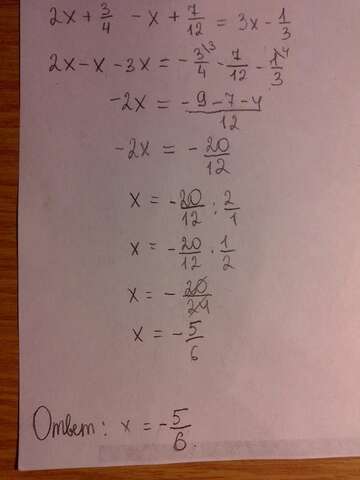 2x + 3/4 - x + 7/12 = 3x - 1/3
2x - x - 3x = - 3\3/4 - 7/12 - 1\4/3
-2x = -9-7-4/12
-2x = - 20/12
x = - 20/12 : 2/1
x = - 20/12 · 1/2
x = - 20/24
x = - 5/6
Ответ: x = - 5/6.